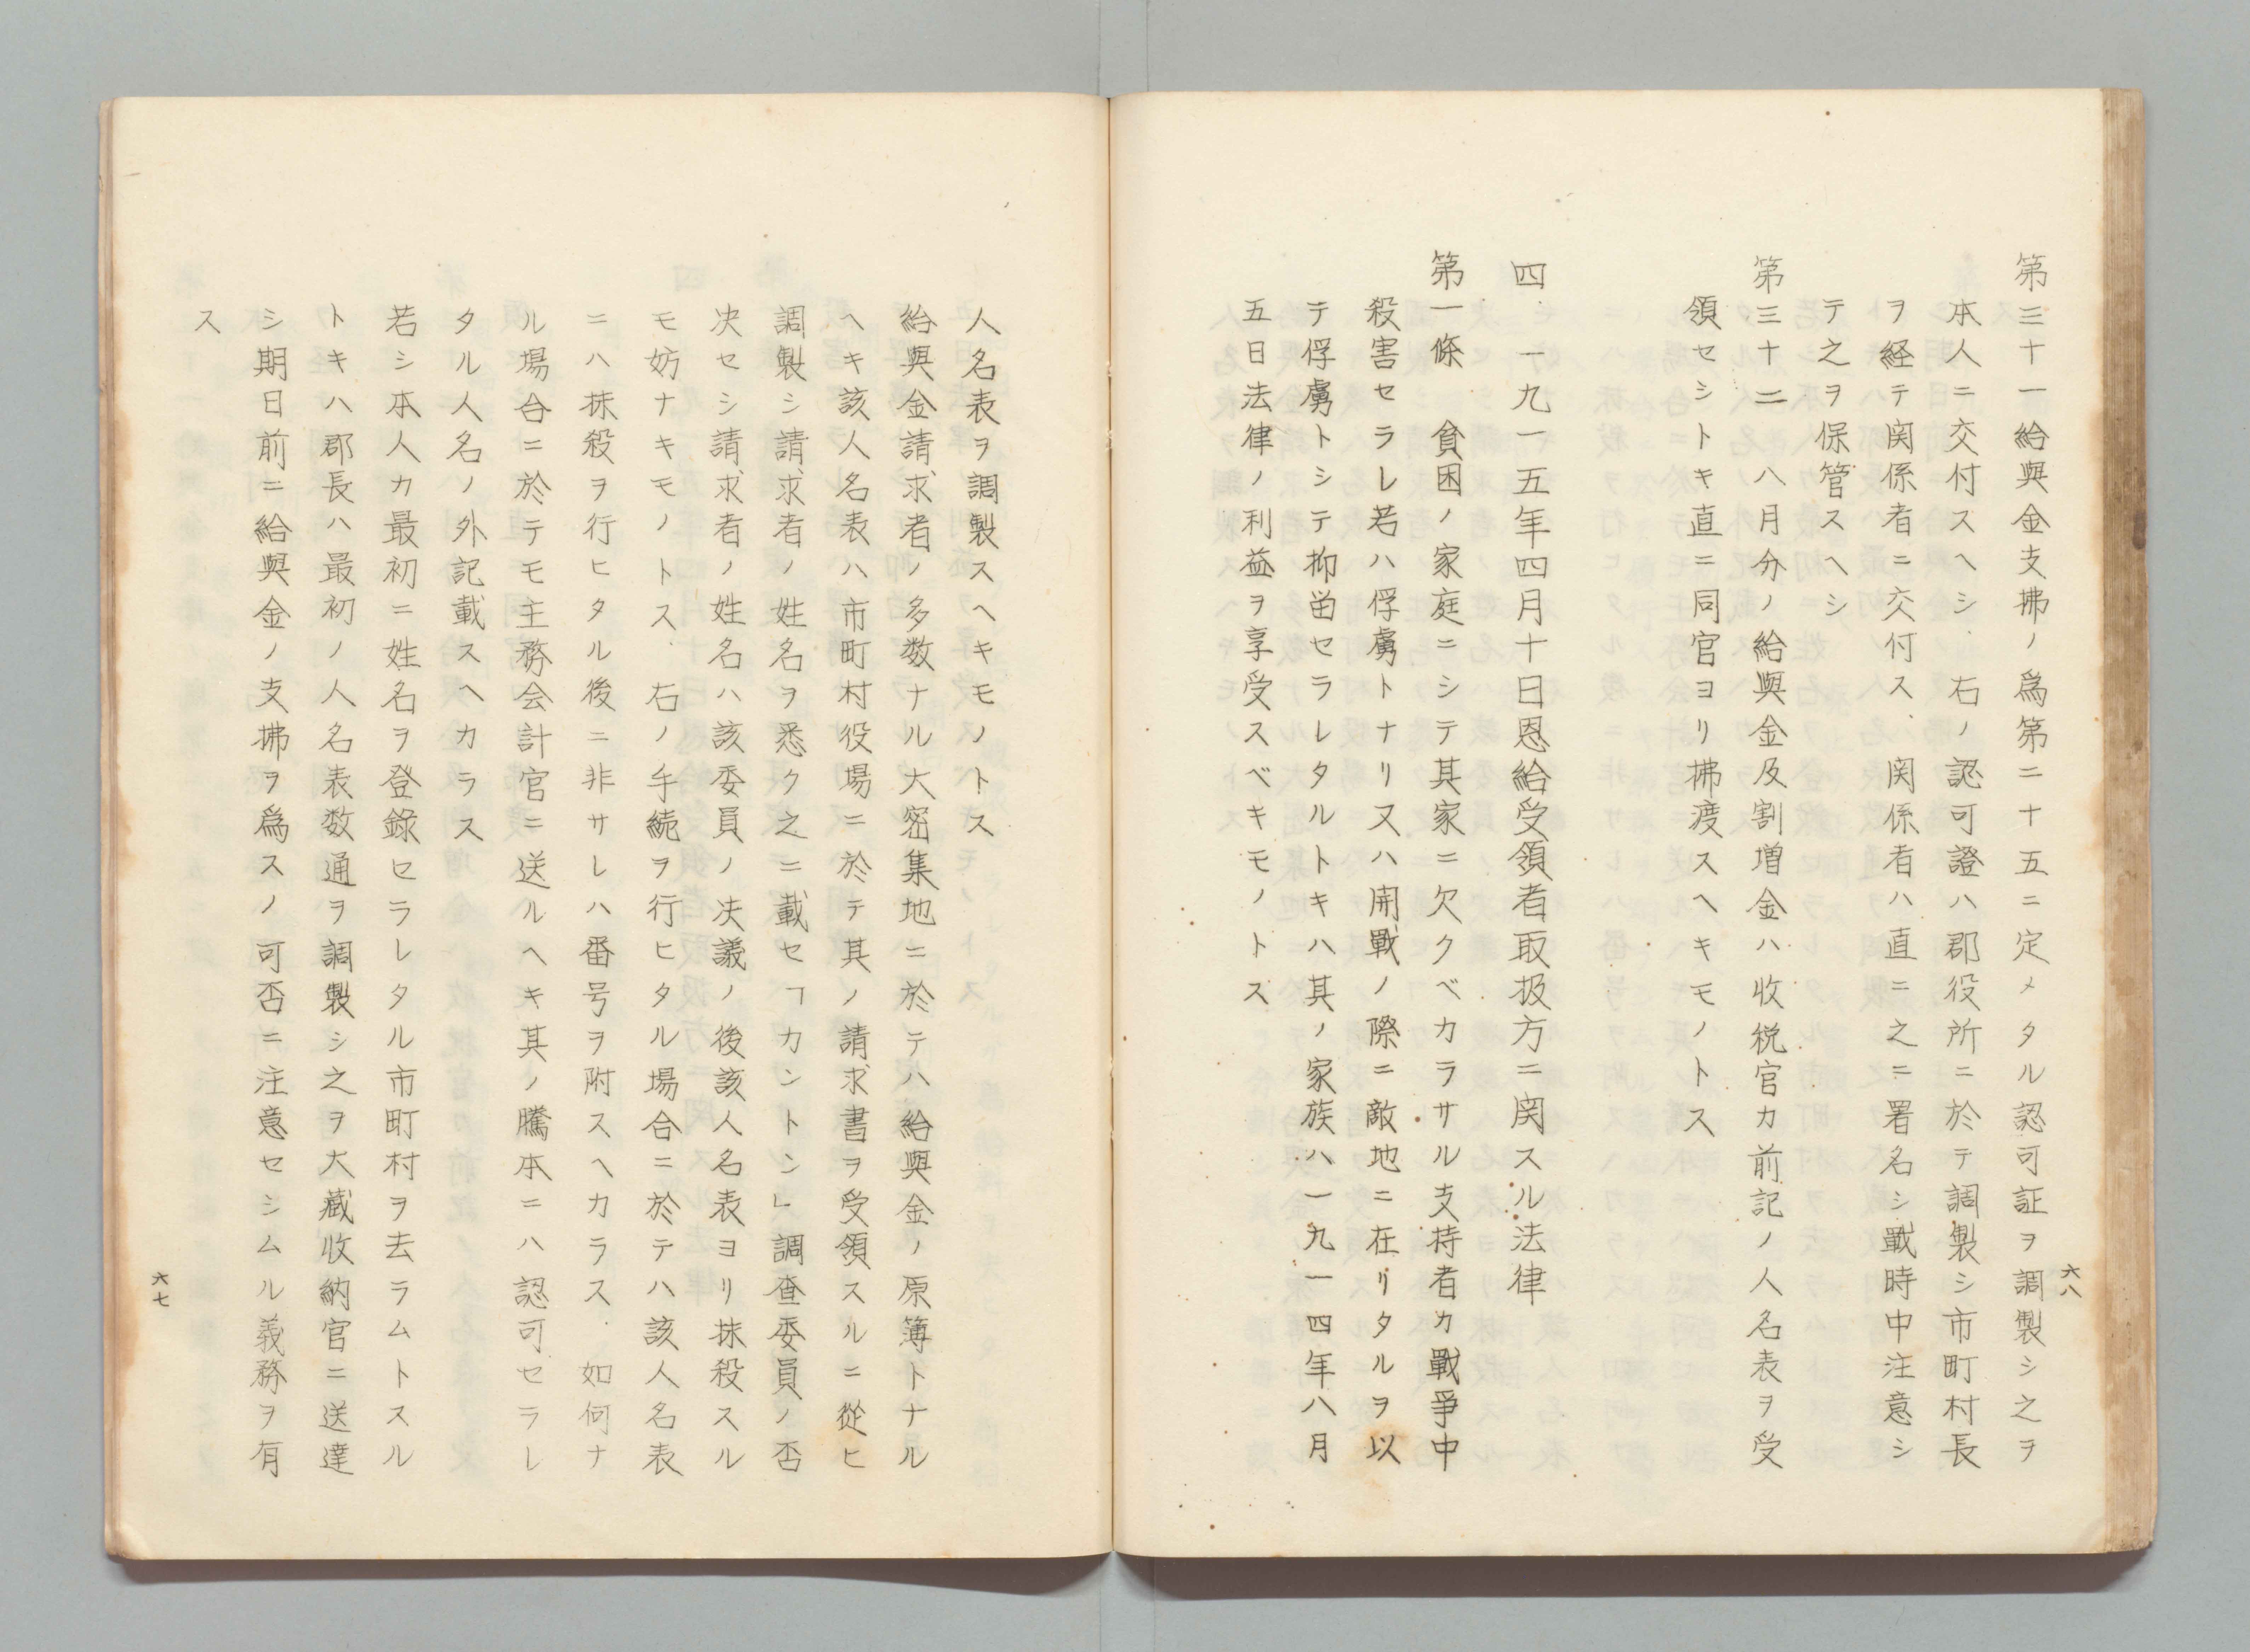 第三十一給與金支拂ノ爲第二十五ニ定メタル認可証ヲ調製シ之ヲ
本人ニ交付スヘシ．右ノ認可證ハ郡役所ニ於テ調製シ市町村長
ヲ経テ関係者ニ交付ス．関係者ハ直ニ之ニ署名シ戰時中注意シ
テ之ヲ保管スヘシ
第三十二　八月分ノ給與金及割増金ハ收税官カ前記ノ人名表ヲ受
領セシトキ直ニ同官ヨリ拂渡スヘキモノトス
四．一九一五年四月十日恩給受領者取扱方ニ関スル法律
第一條　貧困ノ家庭ニシテ其家ニ欠クベカラサル支持者カ戰爭中
殺害セラレ若ハ俘虜トナリ又ハ開戰ノ際ニ敵地ニ在リタルヲ以
テ俘虜トシテ抑留セラレタルトキハ其ノ家族ハ一九一四年八月
五日法律ノ利益ヲ享受スベキモノトス
六八
人名表ヲ調製スヘキモノトス
給與金請求者ノ多数ナル大密集地ニ於テハ給與金ノ原簿トナル
ヘキ該人名表ハ市町村役場ニ於テ其ノ請求書ヲ受領スルニ從ヒ
調製シ請求者ノ姓名ヲ悉ク之ニ載セ「カントン」調査委員ノ否
决セシ請求者ノ姓名ハ該委員ノ决議ノ後該人名表ヨリ抹殺スル
モ妨ナキモノトス．右ノ手続ヲ行ヒタル場合ニ於テハ該人名表
ニハ抹殺ヲ行ヒタル後ニ非サレハ番号ヲ附スヘカラス．如何ナ
ル場合ニ於テモ主務会計官ニ送ルヘキ其ノ騰本ニハ認可セラレ
タル人名ノ外記載スヘカラス
若シ本人カ最初ニ姓名ヲ登錄セラレタル市町村ヲ去ラムトスル
トキハ郡長ハ最初ノ人名表数通ヲ調製シ之ヲ大藏收納官ニ送達
シ期日前ニ給與金ノ支拂ヲ爲スノ可否ニ注意セシムル義務ヲ有
ス
六七